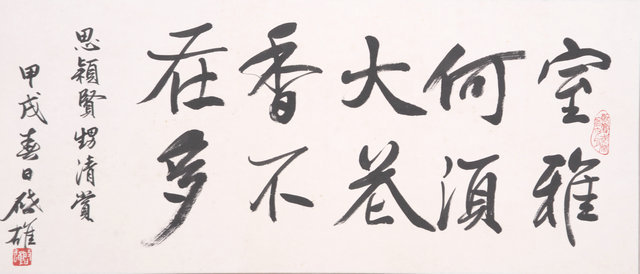 室雅
何須
大花
香不
在多
思穎賢甥清賞
甲戌春日啟雄